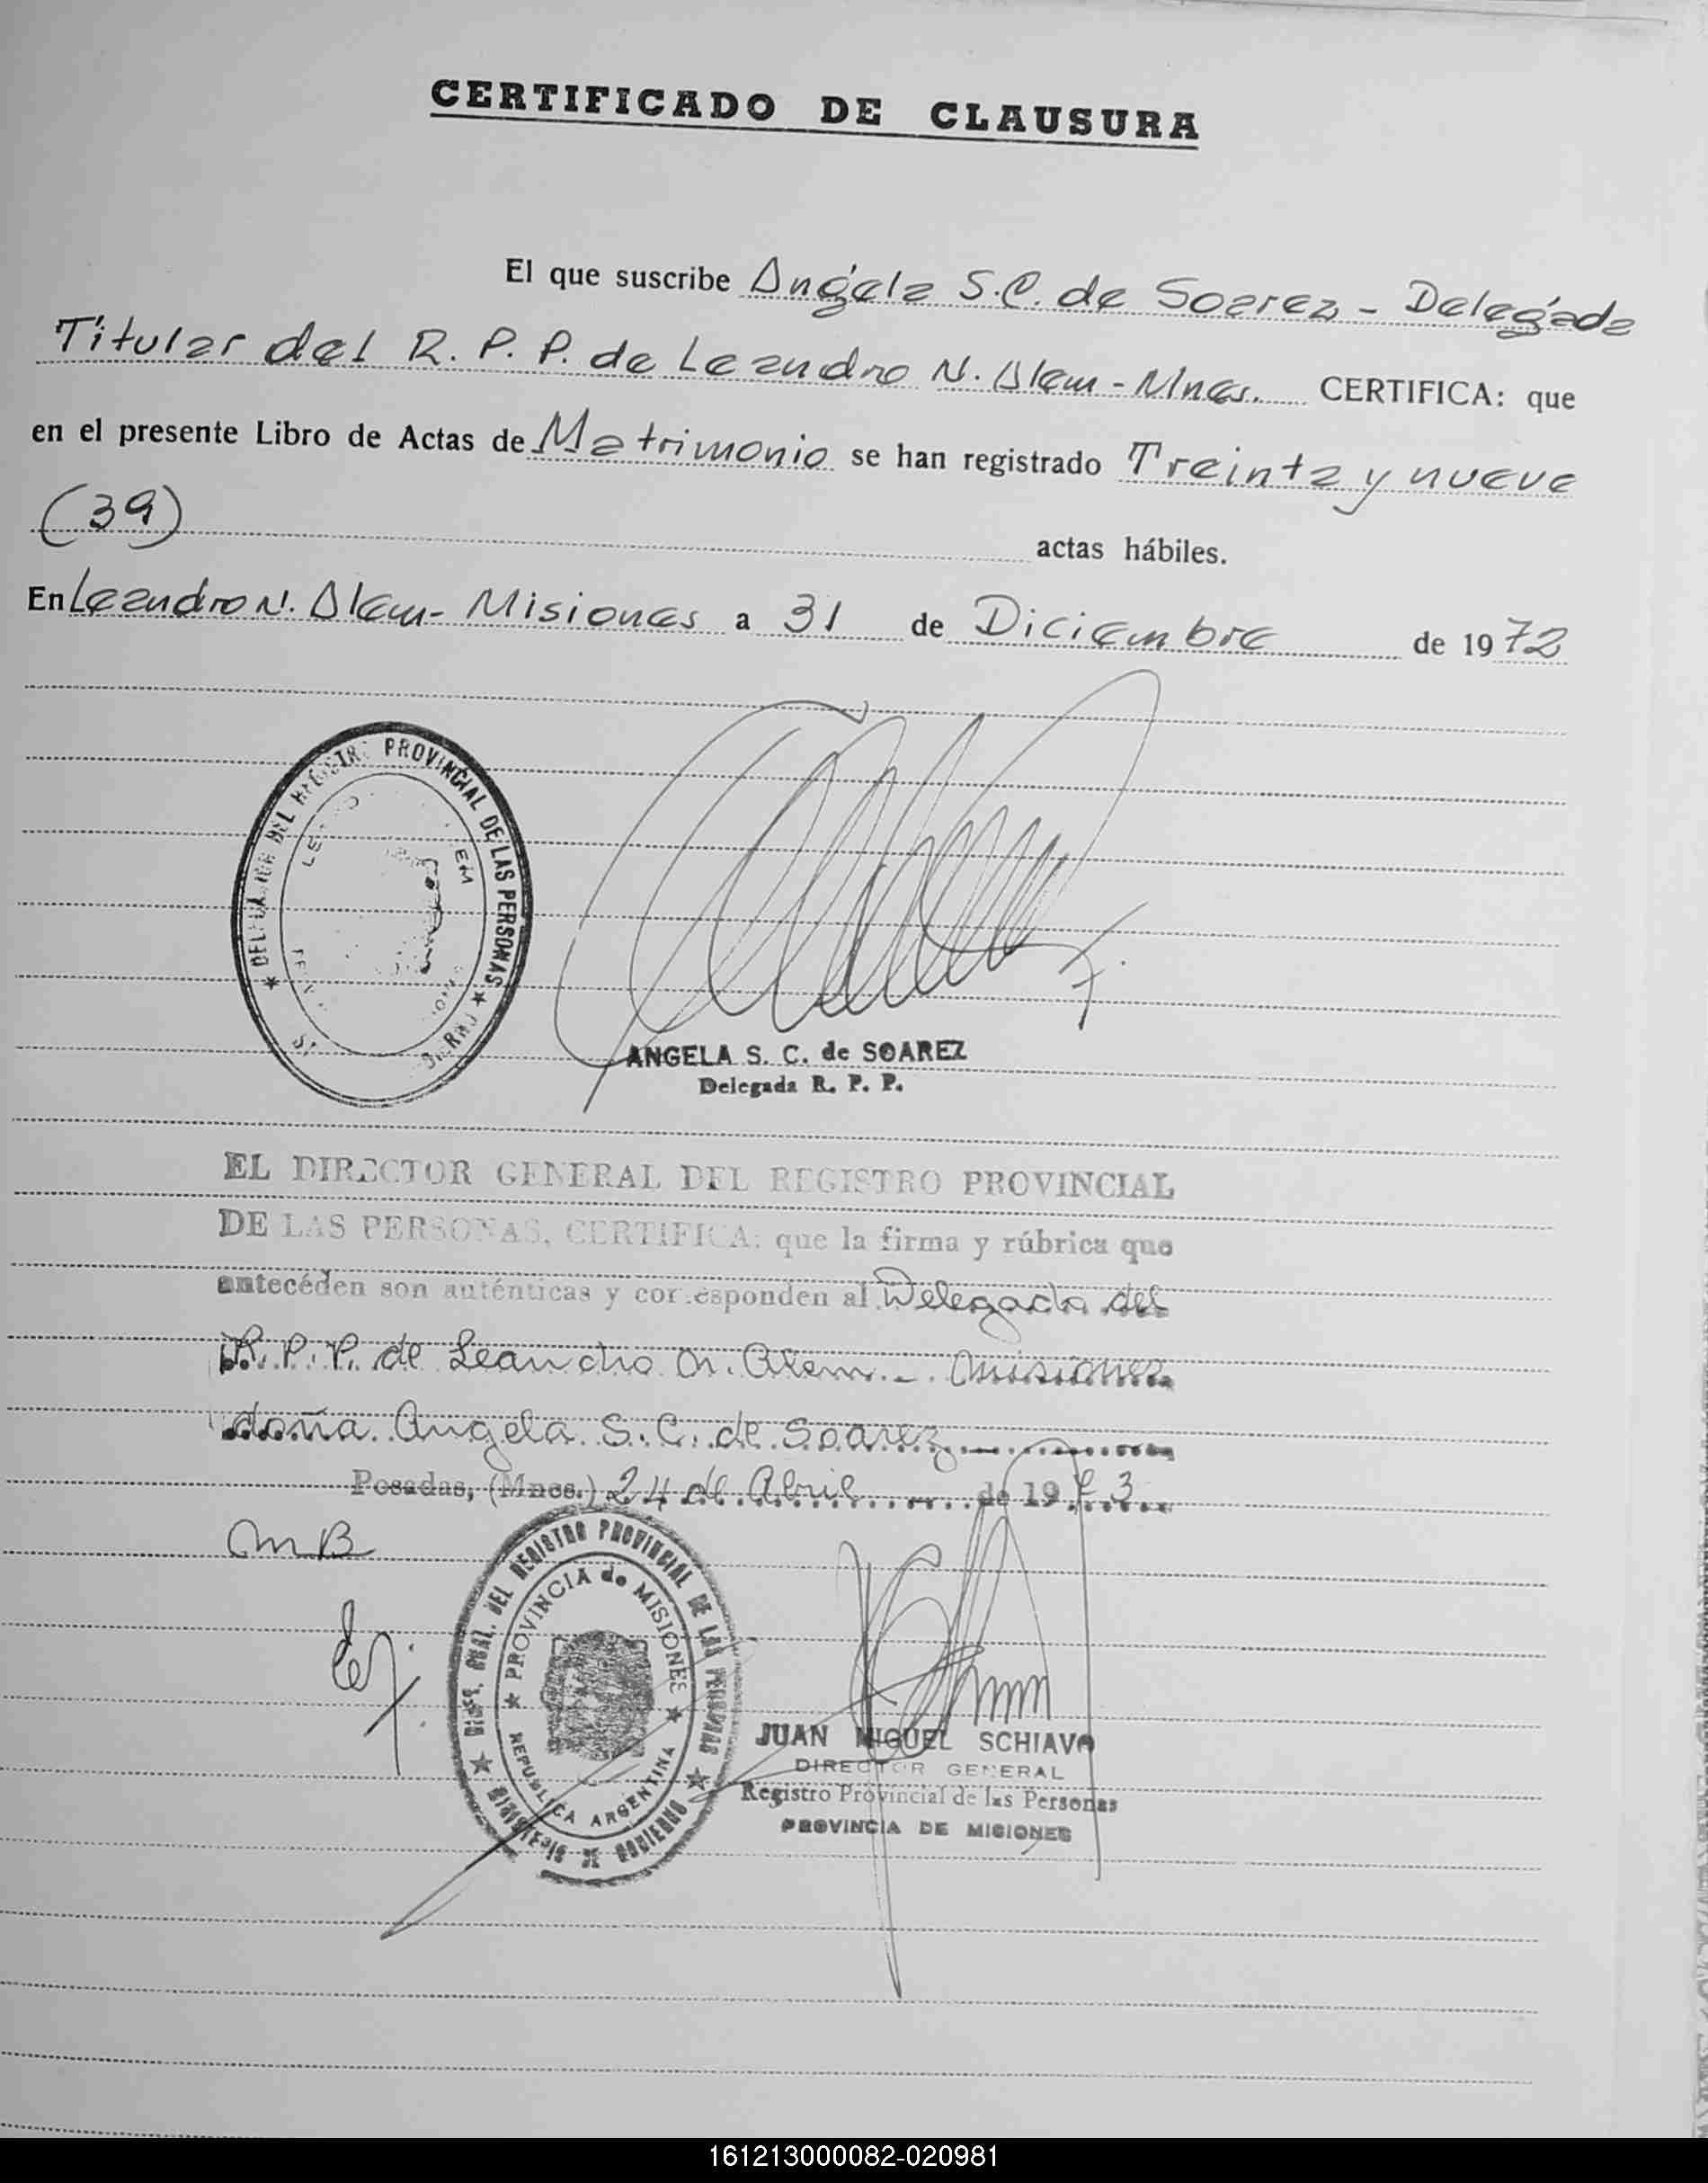 CERTIFICADO DE CLAUSURA
El que suscribe Angela S.C. de Soarez - Delegada
Titular del R. P. P. de Leandro N. Alem - Mnes. CERTIFICA: que
en el presente Libro de Actas de Matrimonio se han registrado Treinta y nueve
(39) actas hábiles.
En Leandro N. Alem - Misiones a 31 de Diciembre de 1972
DEL REGISTRO PROVINCIAL DE LAS PERSONAS
ANGELA S. C. de SOAREZ
Delegada R. P. P.
EL DIRECTOR GENERAL DEL REGISTRO PROVINCIAL
DE LAS PERSONAS, CERTIFICA: que la firma y rúbrica que
antecéden son auténticas y corresponden al Delegada del
R. P. P. de Leandro N. Alem. - Misiones
doña Angela S. C. de Soarez
Posadas, (Mnes.) 24 de Abril de 1973
MB
DIREC. GRAL. DEL REGISTRO PROVINCIAL DE LAS PERSONAS
MINISTERIO DE GOBIERNO
PROVINCIA de MISIONES
REPUBLICA ARGENTINA
JUAN MIGUEL SCHIAVO
DIRECTOR GENERAL
Registro Provincial de las Personas
PROVINCIA DE MISIONES
161213000082-020981